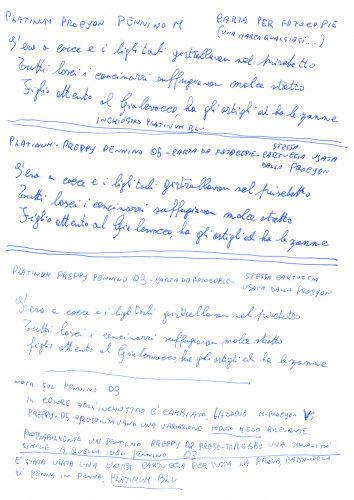 PLATINUM PROCYON PENNINO M
CARTA PER FOTOCOPIE
(UNA MARCA QUALSIASI....)
S'era a cocce e i ligli
nel
Tutti losci i suffuggiavan molce stetto
Figlio attento al Gialovocco, ha gli artigli ed ha le zanne
INCHIOSTRO PLATINUM BLU
PLATINUM - PREPPY PENNINO 05 - CARTA DA FOTOCOPIE - STESSA CARTUCCIA USATA
DALLO PROCYON
S'era a cocce e i ligli
nel
Tutti losci i suffuggiavan molce stetto
Figlio attento al Gialovocco ha gli artigli ed ha le zanne
PLATINUM PREPPY PENNINO 03 - CARTA DA FOTOCOPIE - STESSA CARTUCCIA
USATA DALLO PROCYON
S'era a cocce e i ligli
nel
Tutti losci i suffuggiavan molce stetto
Figlio attento al Gialovocco, ha gli artigli ed ha le zanne
NOTA SUL PENNINO 03
IL COLORE DELL'INCHIOSTRO E' CAMBIATO, M-PROCYON VS
PREPPY-05 PRESENTAVANO UNA VARIAZIONE MENO RILEVANTE
PROBABILMENTE UN PENNINO PREPPY 02 PRESENTEREBBE UNA TONALITÀ
SIMILE A QUELLA DEL PENNINO 03
E' STATA USATA UNA UNICA CARTUCCIA PER TUTTA LA PROVA, PASSANDOLA
DI PENNA IN PENNA, PLATINUM BLU